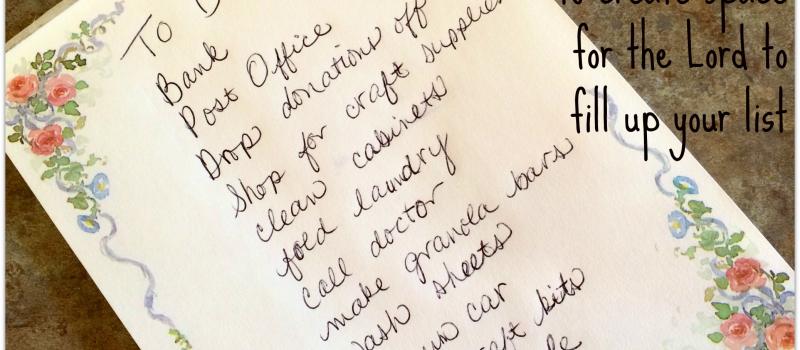 To D
Bank
Post Office
Drop donations off
Shop for craft supplies
clean cabinets
fold laundry
call doctor
make granola bars
wash sheets
car
kits
to create space
for the Lord to
fill up your list